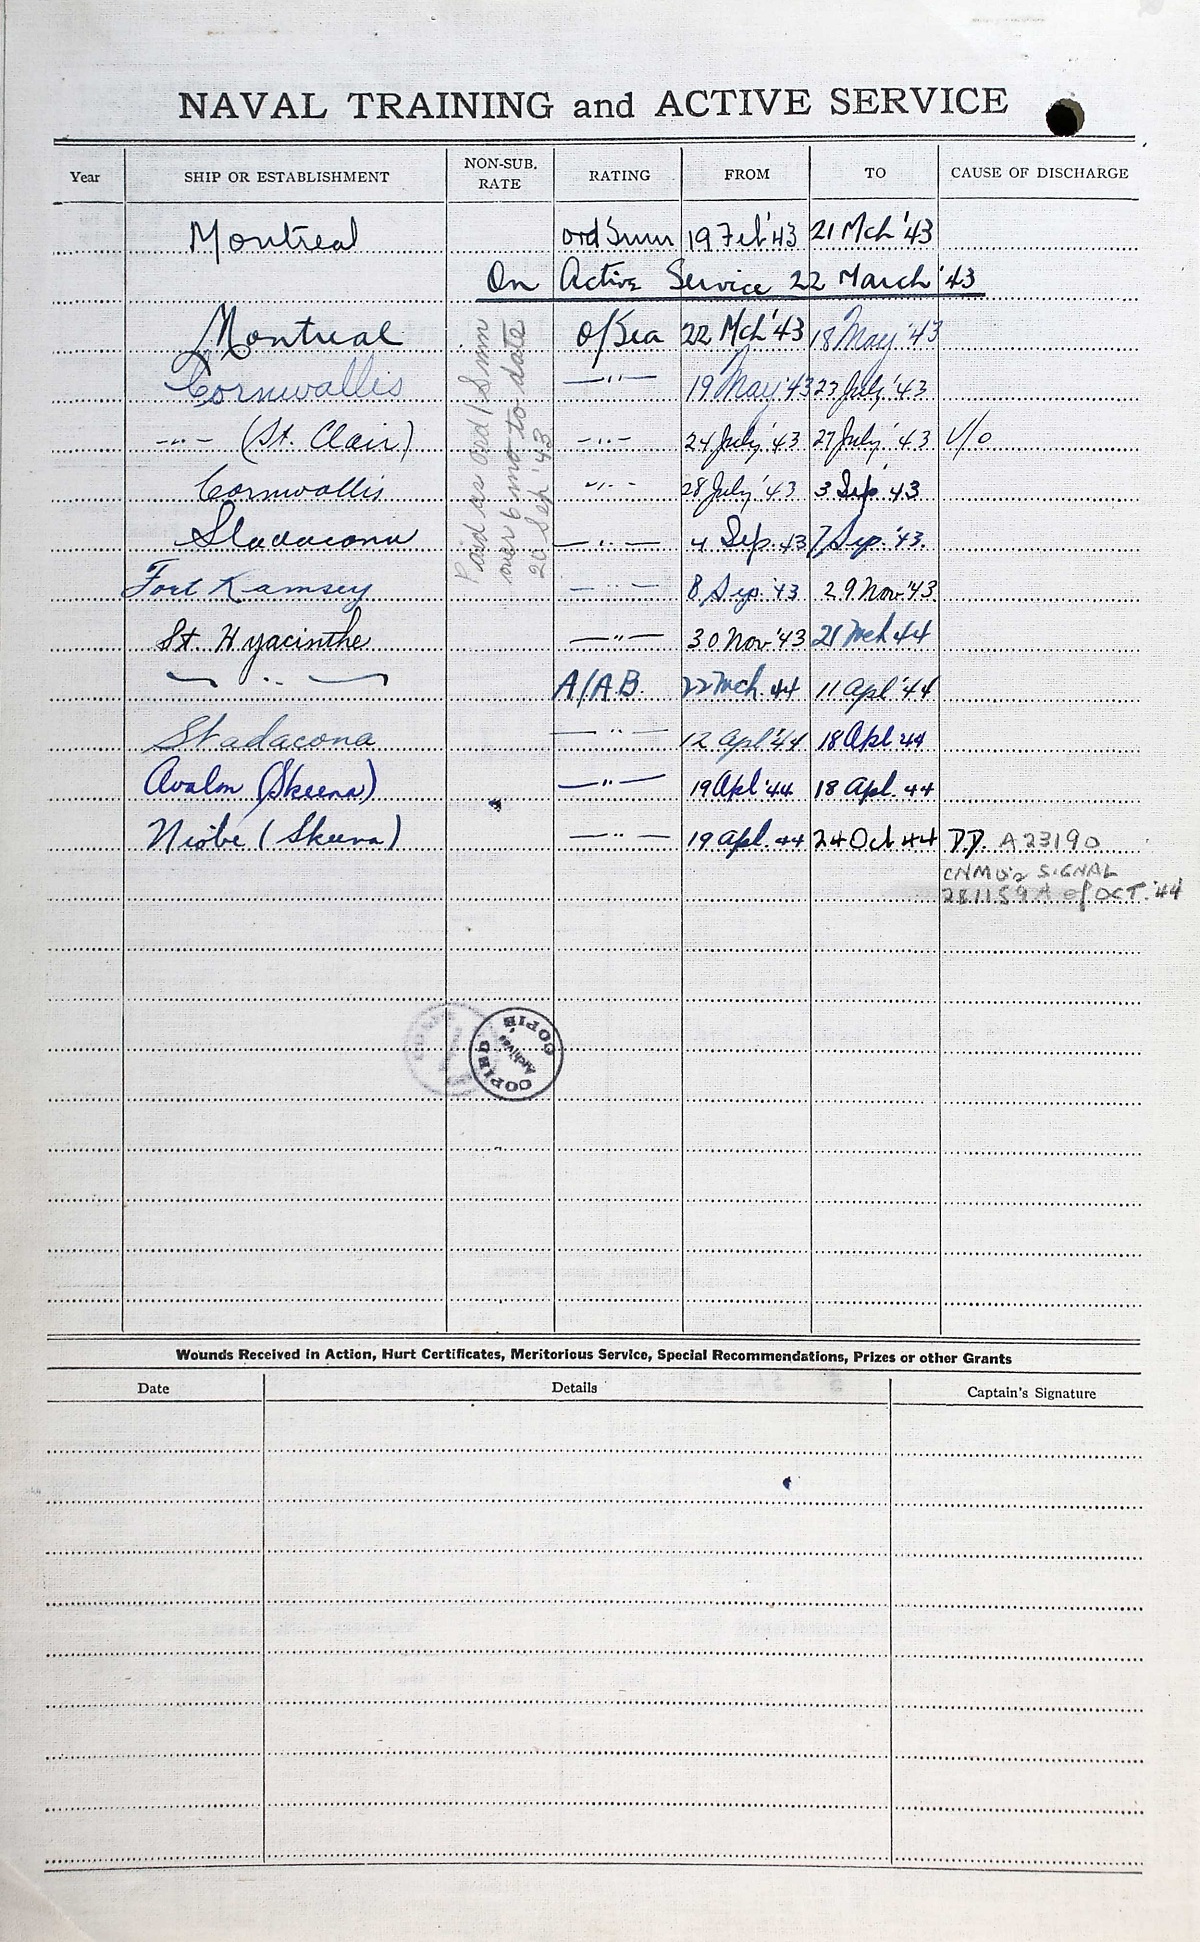 NAVAL TRAINING and ACTIVE SERVICE
Year SHIP OR ESTABLISHMENT NON-SUB. RATE RATING FROM TO CAUSE OF DISCHARGE
Montreal 19 Feb '43 21 Mch '43
On Active Service 22 March '43
Montreal O/Sea 22 Mch '43 18 May '43
Cornwallis —"— 19 May '43 23 July '43
-"- (St. Clair) -"- 24 July '43 27 July '43 V/O
Cornwallis -"- 28 July '43 3 Sep '43
Stadacona —"— 4 Sep. 43 7 Sep. '43.
Fort Ramsey —"— 8 Sep. '43 29 Nov '43
St. Hyacinthe —"— 30 Nov '43 21 Mch 44
—"— A/A.B. 22 Mch. 44 11 Apl '44
Stadacona —"— 12 Apl '44 18 Apl 44
Avalon (Skeena) —"— 19 Apl '44 18 Apl. 44
Niobe (Skeena) —"— 19 Apl. 44 24 Oct 44 D.D. A 23190
CNMO's SIGNAL
281159A of OCT. '44
Paid as ord/Smn
over 6 mo to date
20 Sep '43
COPIED
Archives
COPIÉ
Wounds Received in Action, Hurt Certificates, Meritorious Service, Special Recommendations, Prizes or other Grants
Date Details Captain's Signature